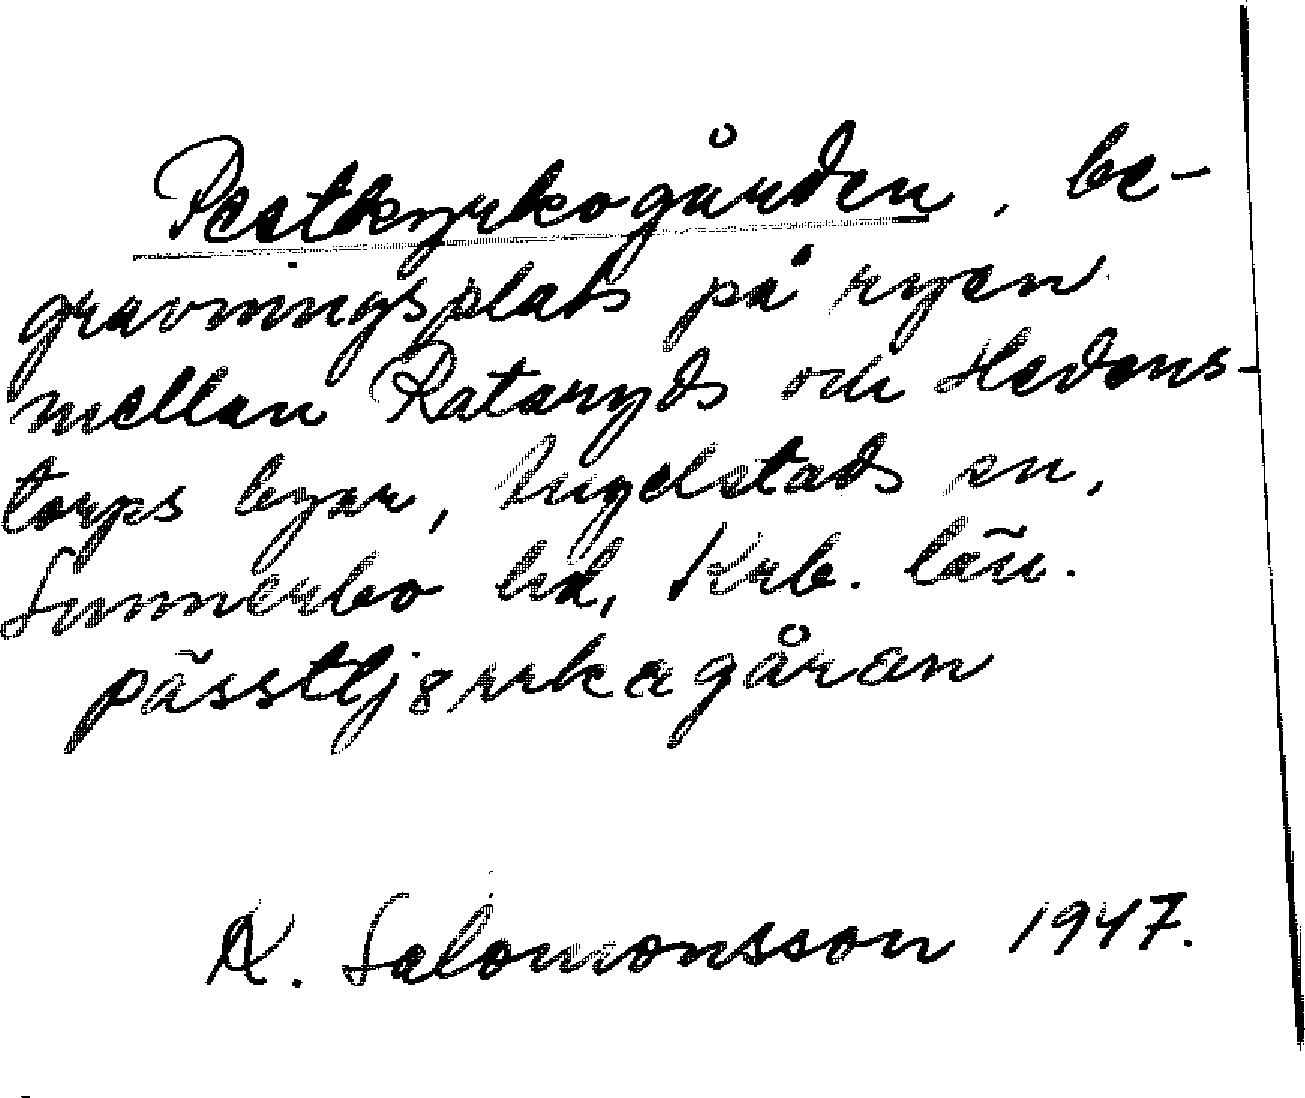 Pestkyrkogården, be-
gravningsplats på ryen
mellan Rataryds och Hedens-
torps byar, Angelstads sn,
Sunnerbo hd, Krb. län.
pässtkj8rrkagåran
A. Salomonsson 1947.